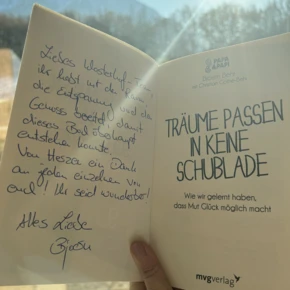 Liebes Westerhof-Team
ihr habt mit
die Entspannung und den
Genuss bereitet damit
dieses Buch überhaupt
entstehen konnte.
Von Herzen ein Dank
an jeden einzelnen von
euch! Ihr seid wunderbar!
Alles Liebe
PAPA
TRÄUME PASSEN
IN KEINE
SCHUBLADE
Wie wir gelernt haben,
dass Mut Glück möglich macht
mvgverlag